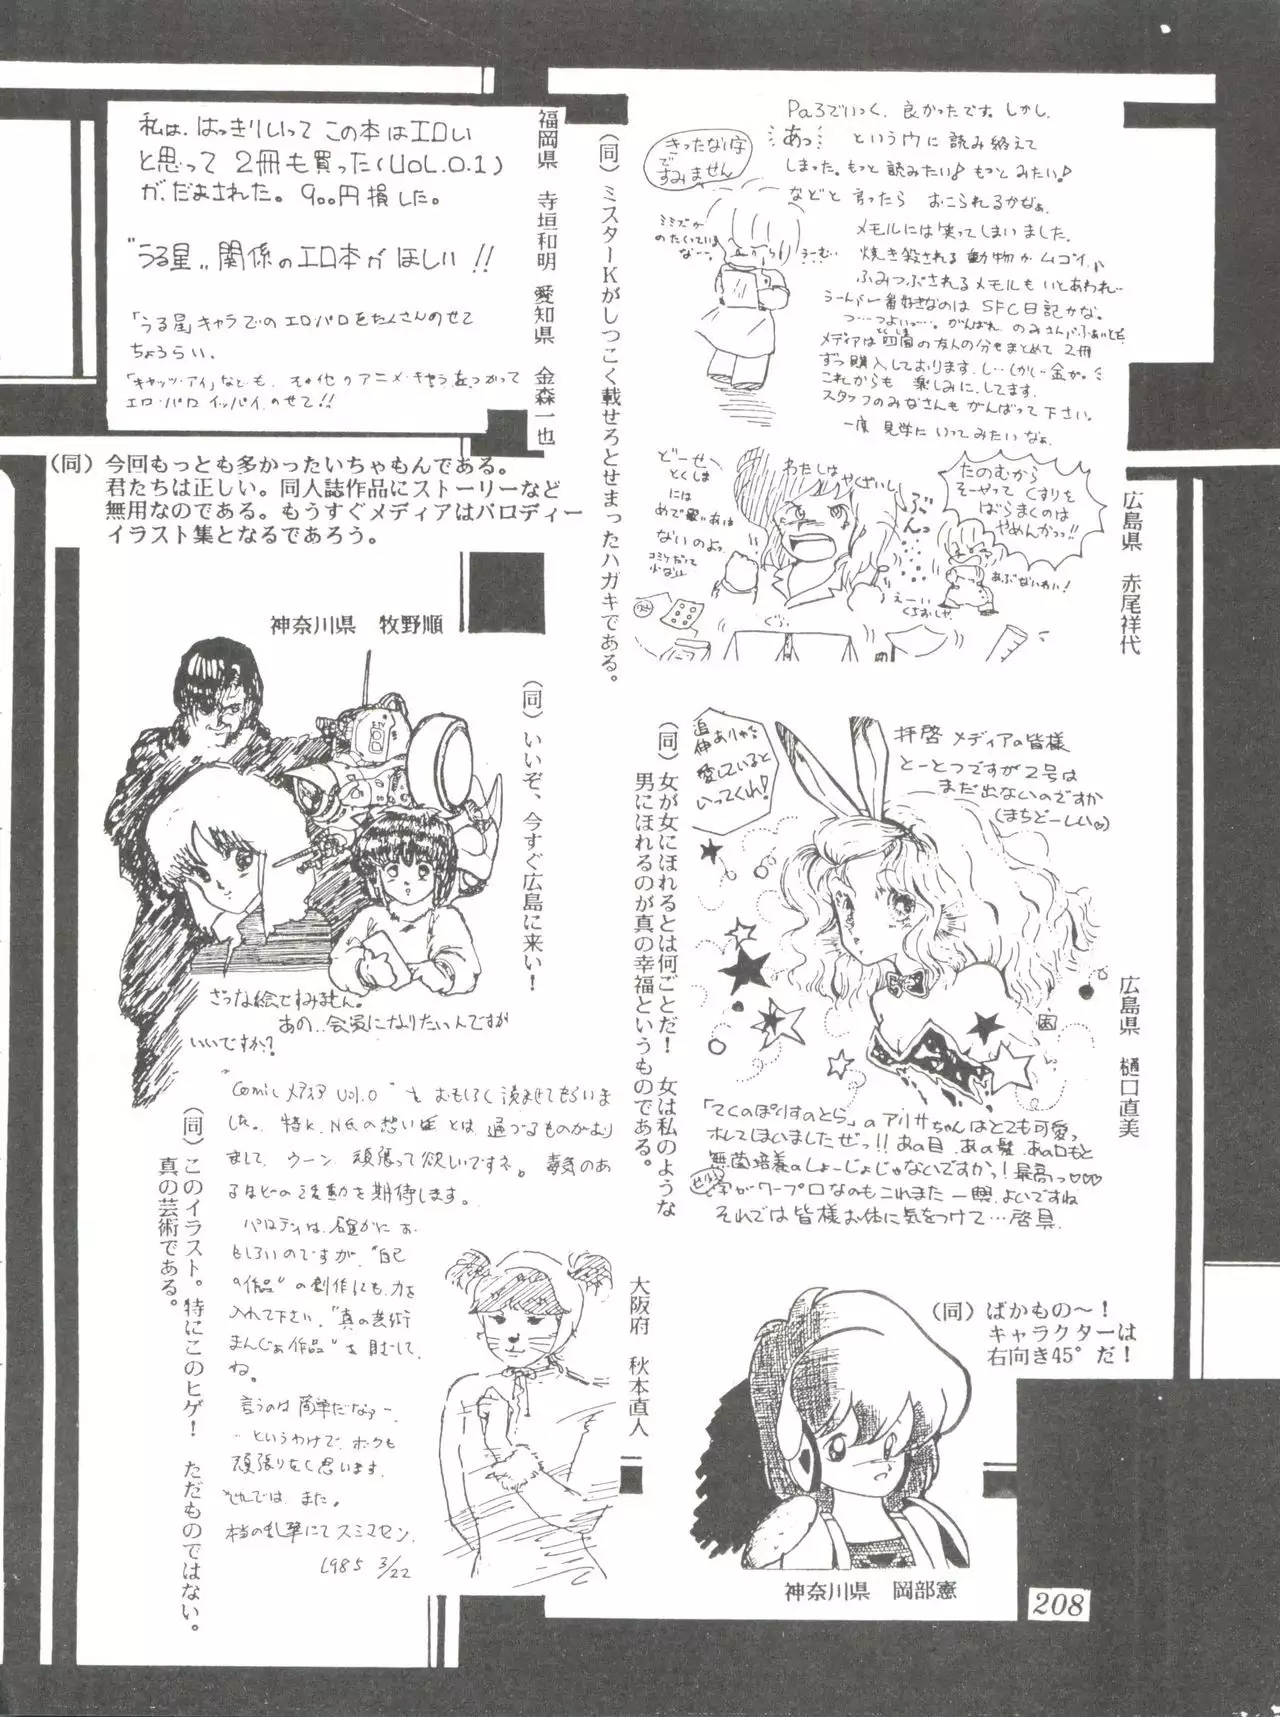 私は、はっきりいって この本はエロい
と思って 2冊も買った(VOL.0.1)
が、だまされた。900円損した。
"うる星„ 関係のエロ本が ほしい!!
「うる星」キャラでの エロ・パロをたくさんのせて
ちょうらい。
「キャッツ・アイ」なども、その他のアニメ・キャラをつかって
エロ・パロ イッパイ のせて!!
福岡県 寺垣和明 愛知県 金森一也
(同) 今回もっとも多かったいちゃもんである。
君たちは正しい。同人誌作品にストーリーなど
無用なのである。もうすぐメディアはパロディー
イラスト集となるであろう。
(同) ミスターKがしつこく載せろとせまったハガキである。
きったない字
で
すみません
ミミズが
のたくっている
な…。
うーむ…
Pa3でいっく、良かったです。しかし、
あっ
というウに 読み終えて
しまった。もっと 読みたい♪ もっと みたい♪
などと 言ったら おこられるかなぁ、
メモルには笑ってしまいました。
焼き殺される 動物が ムゴイ、
ふみつぶされるメモルも いとあわれ…
うーん、一番好きなのは SFC日記かな。
つ…つよいっ…。がんばれ のみさん、ふぁいとだ
メディアは四国の友人の分もまとめて 2冊
とくしま
ずつ購入しております。し…くがし…金が。
これからも 楽しみに、してます。
スタッフのみなさんも がんばって 下さい。
一度 見学に いってみたいなぁ。
どーせ
とくしま
には
ないのよっ
わたしは
やくざいし
ぶんっ
たのむから
そーやって くすりを
ばらまくのは
やめんかっっ!!
あぶないわい!
えーい
くちおしや
広島県 赤尾祥代
神奈川県 牧野順
(同) いいぞ、今すぐ広島に来い!
ざつな絵ですみません。
あの…会員になりたいんですが
いいですか?
追伸ありさに
愛していると
いってくれ!
拝啓 メディアの皆様
とーとつですが 2号は
まだ出ないのですか
(まちどーしい♡)
(同) 女が女にほれるとは何ごとだ! 女は私のような
男にほれるのが真の幸福というものである。
広島県 樋口直美
「てくのぽりすのとら」のアリサちゃんはとても可愛っ
ホレてしまいましたぜっ!!あの目、あの髪、あの口もと
無菌培養のしょーじょじゃないですかっ!最高っ♡♡♡
字がワープロなのもこれまた一興、よいですね
それでは皆様お体に気をつけて…啓具.
"Comic メディア Vol.0" を おもしろく 読ませてもらいま
した。特に、N氏の想いは とは 通づるものがあり
まして、ウーン 頑張って 欲しいですネ。毒気のあ
るほどの 活動を 期待します。
パロディは、確かに お
もしろいのですが、"自己
の作品"の創作にも、力を
入れて下さい、"真の芸術
まんが作品"を目ざして
ね。
言うのは 簡単だなァー、
…というわけで、ボクも
頑張りたく思います。
それでは、また。
本当の乱筆にて スミマセン、
1985 3/22
(同) このイラスト。特にこのヒゲ! ただものではない。
真の芸術である。
大阪府 秋本直人
(同) ばかもの〜!
キャラクターは
右向き45°だ!
神奈川県 岡部憲
208